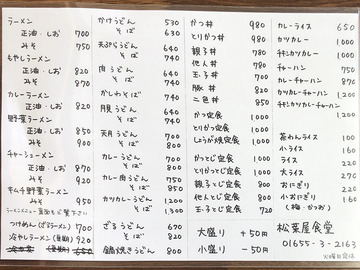 ラーメン
正油・しお 700
みそ 750
もやしラーメン
正油・しお 820
みそ 870
カレーラーメン
正油・しお 820
野菜ラーメン
正油・しお 850
みそ 900
チャーシューメン
正油・しお 870
みそ 920
キムチ野菜ラーメン
950
つけめん(ざるラーメン) 700
冷やしラーメン(夏期) 920
かけうどん 530
そば 630
天ぷらうどん 640
そば 740
肉うどん 640
そば 740
かしわそば 740
月見うどん 640
そば 740
天月うどん 700
そば 800
カレーうどん 700
そば 800
カレー肉うどん 750
そば 850
カツカレーうどん 1,100
そば 1,200
ざるうどん 670
そば
鍋焼きうどん 880
かつ丼 980
とりかつ丼 980
親子丼 780
他人丼 780
玉子丼 700
豚丼 820
二色丼 850
かつ定食 1000
とりかつ定食 1000
しょうが焼定食 1000
かつとじ定食 1000
とりとじ定食 1000
親子とじ定食 820
他人とじ定食 820
玉子とじ定食 720
大盛り +50円
小盛り -50円
カレーライス 650
カツカレー 1,000
チキンカツカレー 1,000
チャーハン 750
カレーチャーハン 870
カツカレーチャーハン 1,200
チキンカツカレーチャーハン 1,200
茶わんライス 110
小ライス 160
ライス 220
大ライス 270
おにぎり 220
小おにぎり 160
(梅・かつお)
松葉屋食堂
01655-3-2163
火曜日定休